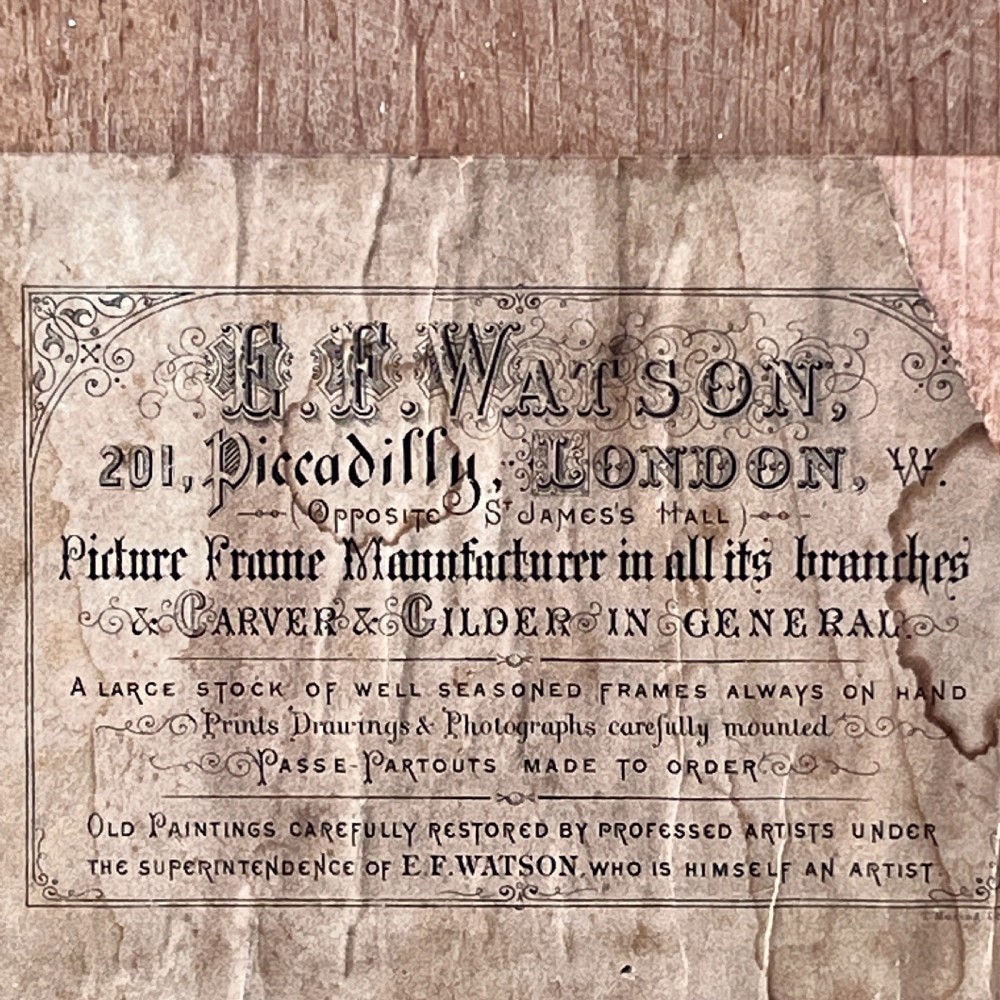 E. F. WATSON,
201, Piccadilly, LONDON, W.
(OPPOSITE ST JAMES'S HALL)
Picture Frame Manufacturer in all its branches
& CARVER & GILDER IN GENERAL.
A LARGE STOCK OF WELL SEASONED FRAMES ALWAYS ON HAND
Prints Drawings & Photographs carefully mounted
PASSE-PARTOUTS MADE TO ORDER
OLD PAINTINGS CAREFULLY RESTORED BY PROFESSED ARTISTS UNDER
THE SUPERINTENDENCE OF E F. WATSON. WHO IS HIMSELF AN ARTIST.